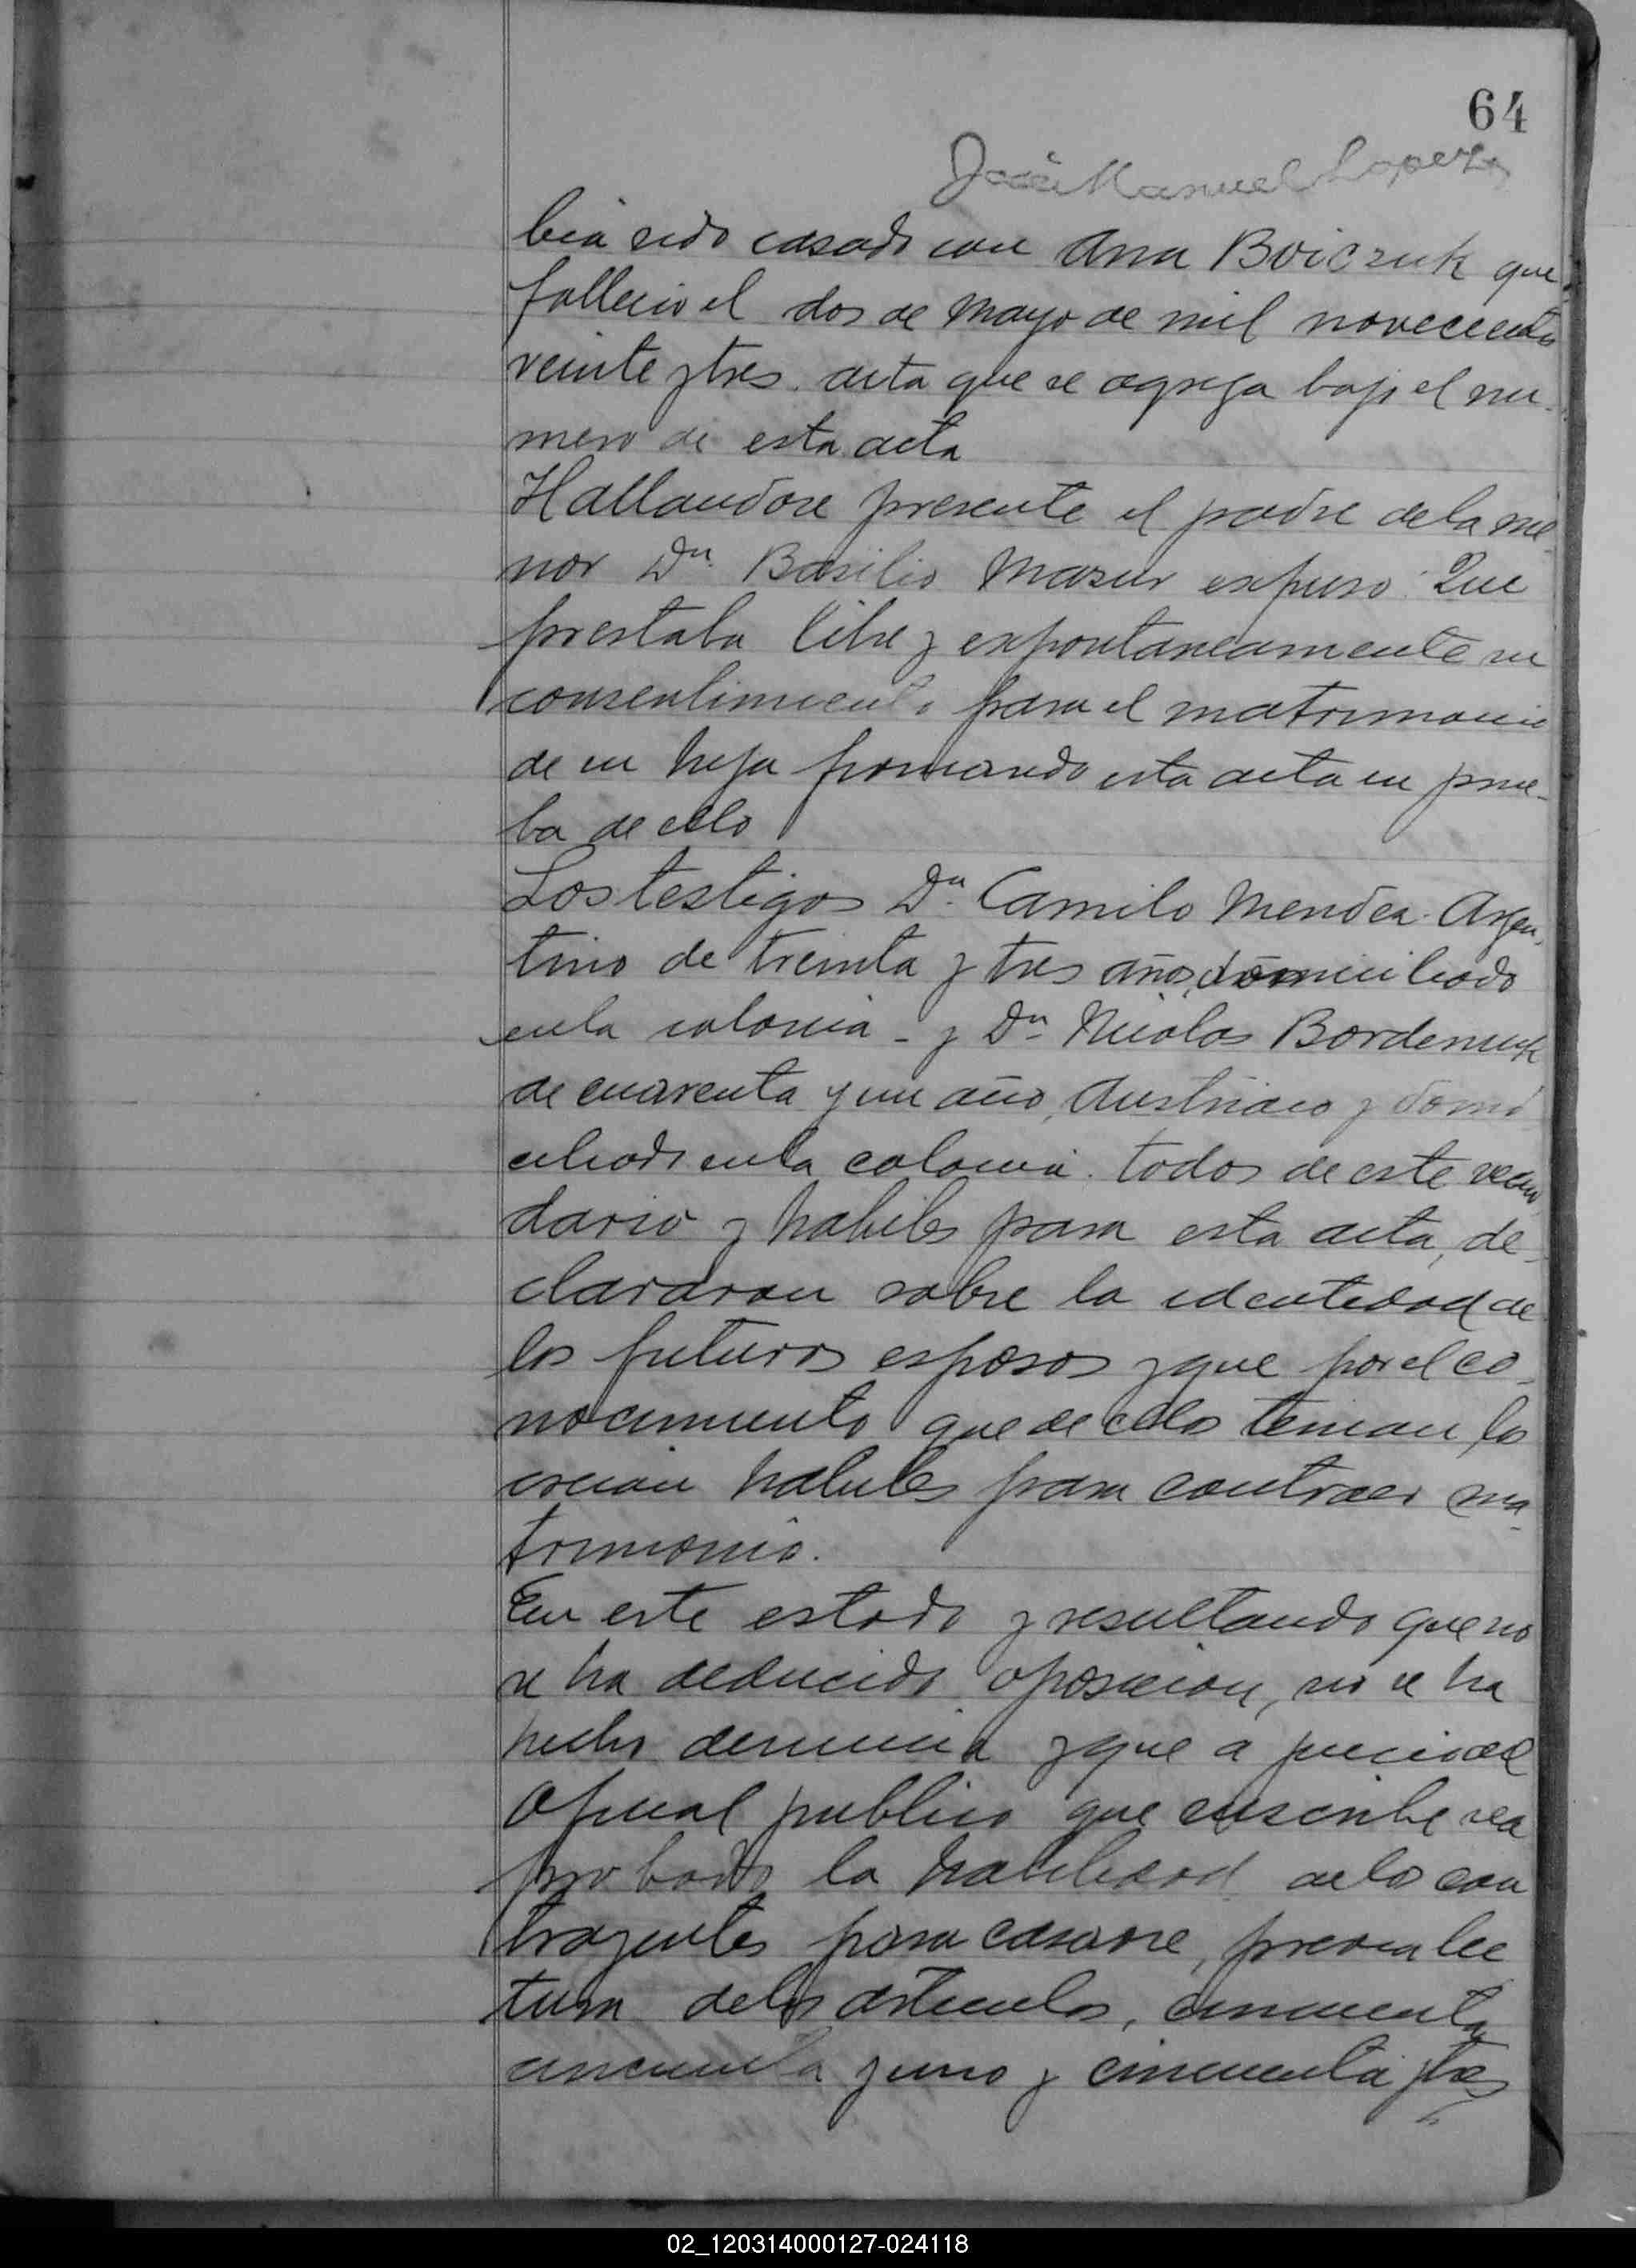 64
José Manuel Lopez
bia sido casado con Ana Boiczuk que
fallecio el dos de Mayo de mil novecientos
veinte y tres. acta que se agrega bajo el nu-
mero de esta acta
Hallandose presente el padre de la me-
nor Dn. Basilio Mazur expuso: Que
prestaba libre y espontaneamente su
consentimiento para el matrimonio
de su hija firmando esta acta en prue-
ba de ello
Los testigos Dn. Camilo Mendez. Argen-
tino de treinta y tres años, domiciliado
en la colonia - y Dn. Nicolas
de cuarenta y un año, Austriaco y domi
ciliado en la colonia. todos de este vecin
dario y habiles para esta acta, de-
clararon sobre la identidad de
los futuros esposos y que por el co-
nocimiento que de ellos tenian los
creian habiles para contraer ma-
trimonio.
En este estado y resultando que no
se ha deducido oposicion, no se ha
hecho denuncia y que a juicio del
Oficial publico que suscribe sea
probado la habilidad de los con
trayentes para casarse, previa lec
tura de los articulos, cincuenta
cincuenta y uno y cincuenta y tres